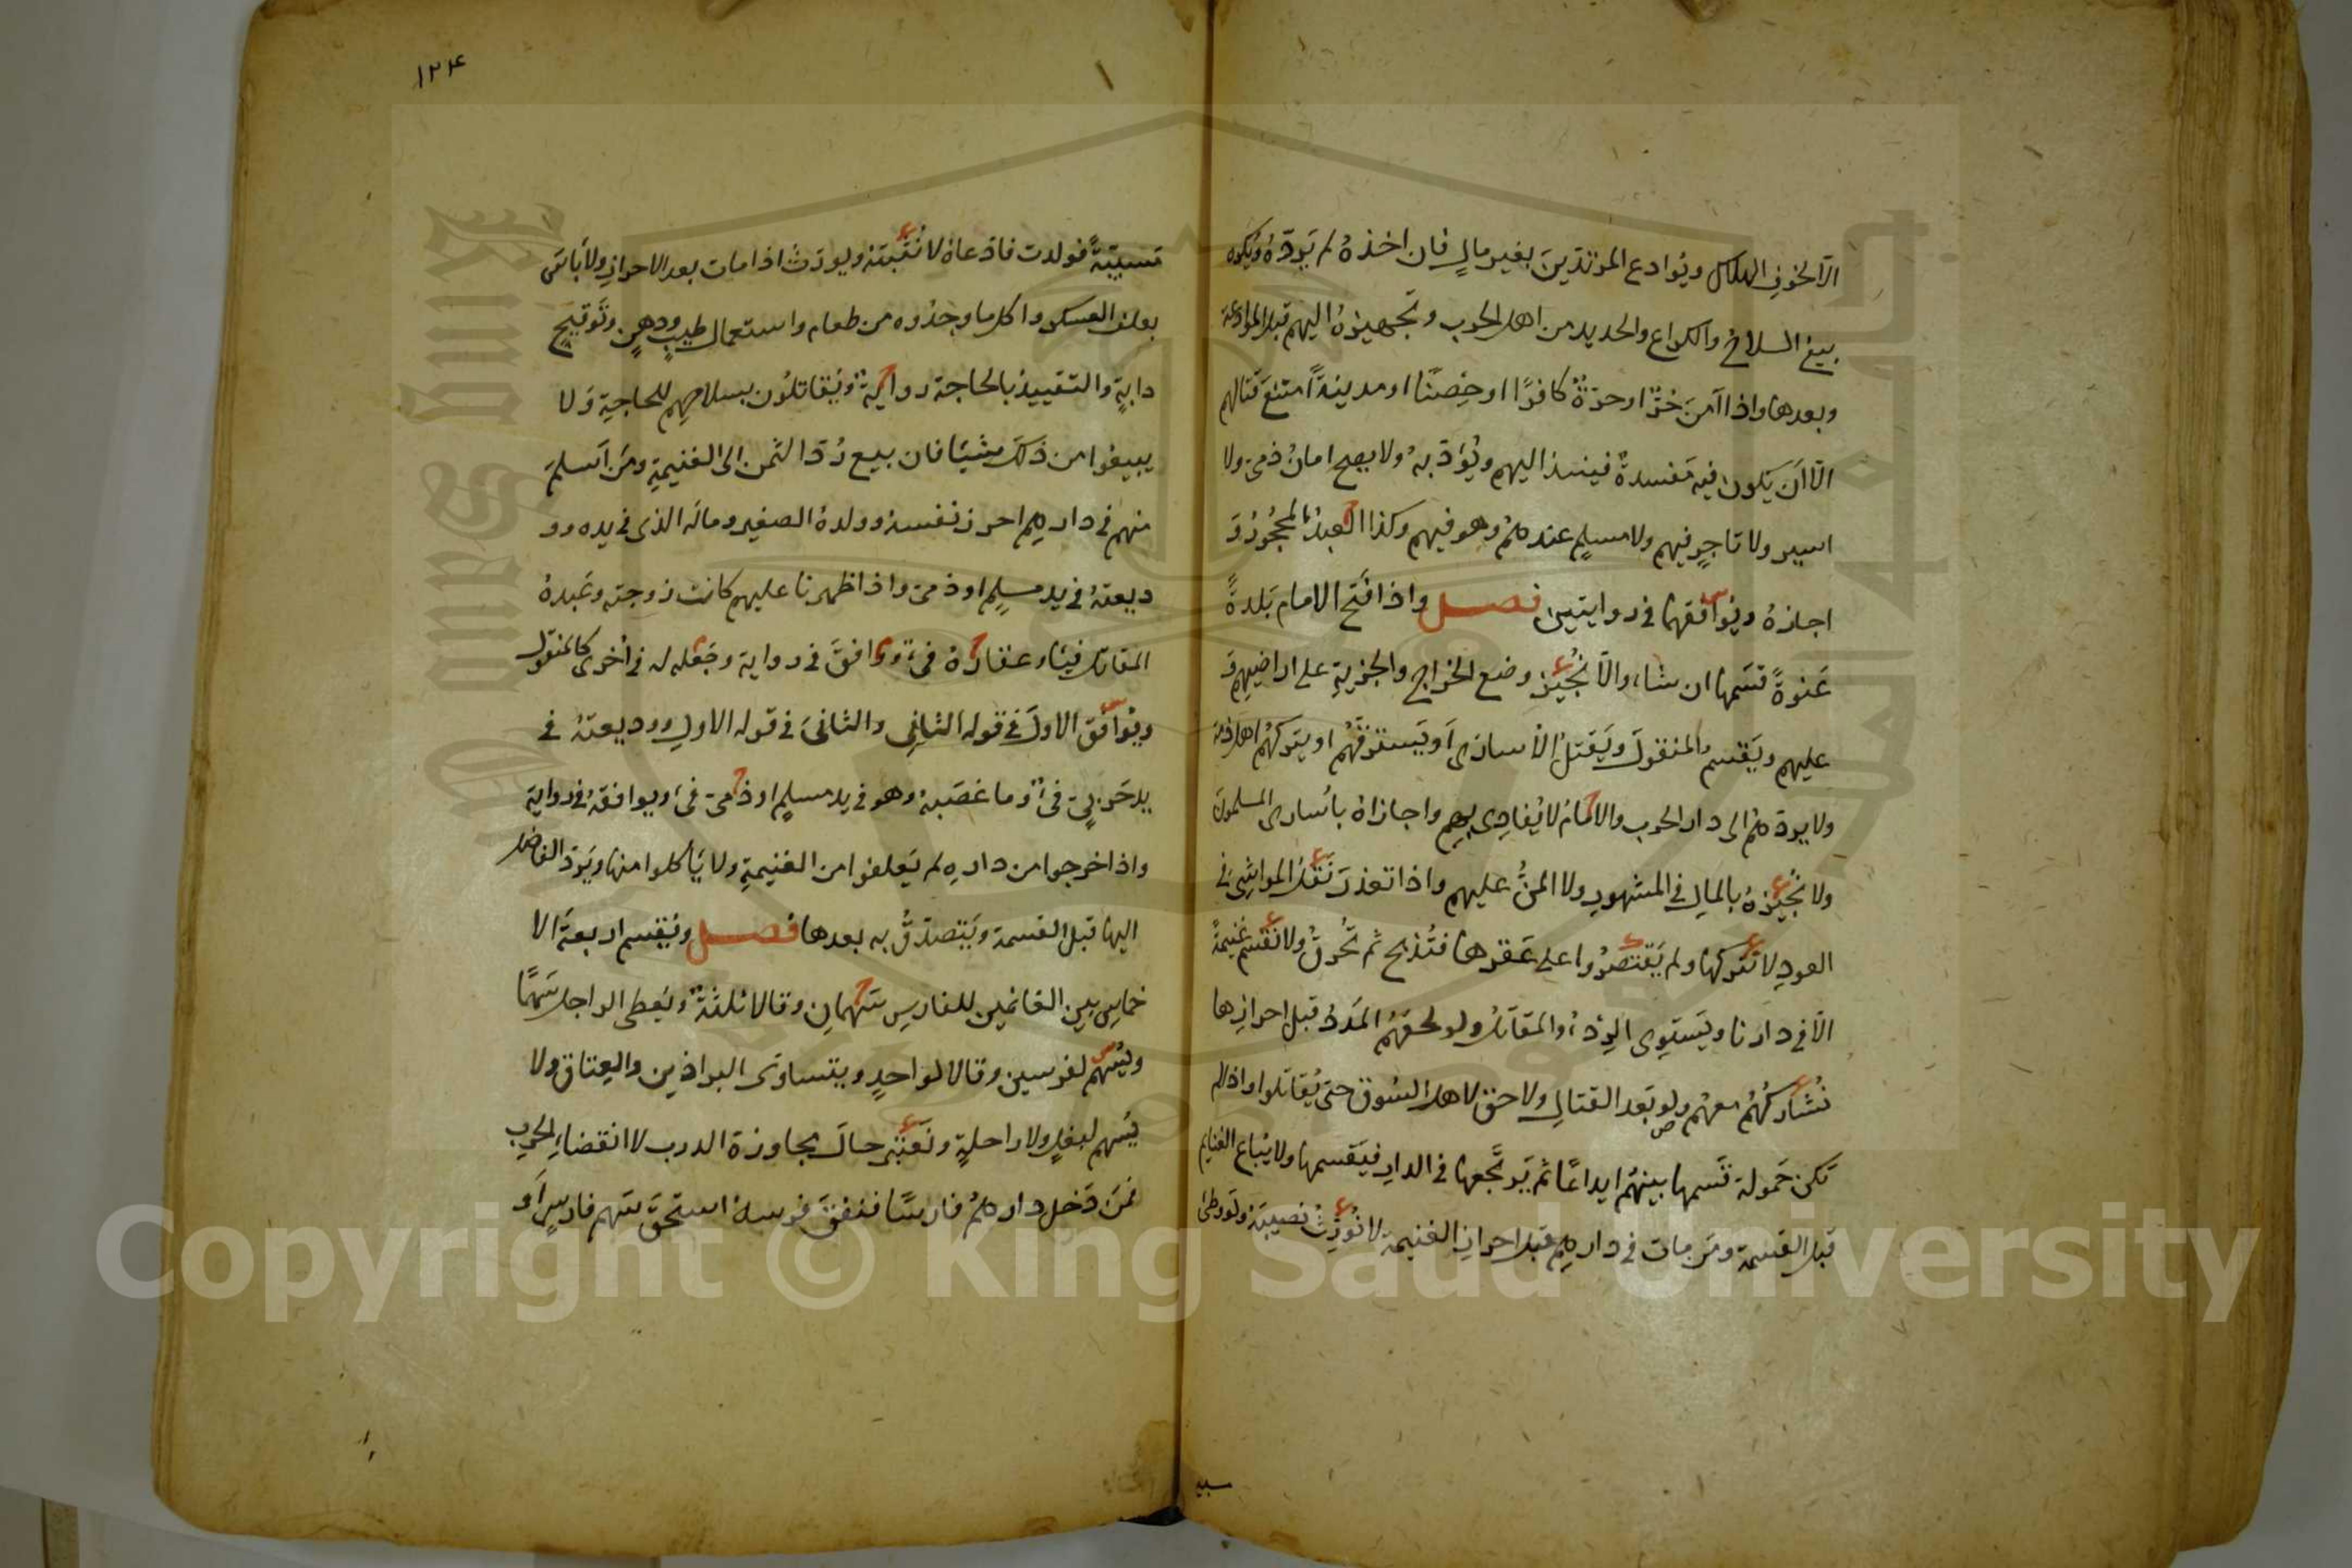 الا لخوف الهلاك ويوادع المرتدين بغير مال فان اخذه لم يرده ويكره
بيع السلاح والكراع والحديد من اهل الحرب وتجهيزه اليهم قبل الموادعة
وبعدها واذا آمن حرّ او حرّة كافرًا او حصنًا او مدينة امتنع قتالهم
الّا ان يكون فيه مفسدة فينبذ اليهم ويؤدّبه ولا يصح امان ذمي ولا
اسير ولا تاجر فيهم ولا مسلم عندهم وهو فيهم وكذا العبد المحجور و
اجازه ويوافقها في روايتين فصل واذا فتح الامام بلدة
عنوة قسمها ان شاء والّا نجيز وضع الخراج والجزية على اراضيهم و
عليهم ويقسم المنقول ويقتل الاسارى او يسترقهم او يتركهم اهل ذمة
ولا يردهم الى دار الحرب والامام لا يفادى بهم واجازاه باسارى المسلمين
ولا نجيزه بالمال في المشهور ولا المنّ عليهم واذا تعذر نقل المواشي في
العود لا نتركها ولم يقتصروا على عقرها فتذبح ثم تحرق ولا نقسم غنيمة
الّا في دارنا ويستوى الردء والمقاتل ولو لحقهم المدد قبل احرازها
نشاركهم معهم ولو بعد القتال ولا حق لاهل السوق حتى يقاتلوا واذا لم
تكن حمولة قسمها بينهم ايداعًا ثم يرتجعها في الدار فيقسمها ولا يباع الغنايم
قبل القسمة ومن مات في دارهم قبل احراز الغنيمة لا نورث نصيبه ولو وطئ
سبيه
١٢٤
سبية فولدت فادعاه لا نثبته ويورث اذا مات بعد الاحراز ولا باس
بعلف العسكر واكل ما وجدوه من طعام واستعمال طيب ودهن وتوقيح
دابة والتقييد بالحاجة رواية ويقاتلون بسلاحهم للحاجة ولا
يبيعوا من ذلك شيئا فان بيع ردّ الثمن الى الغنيمة ومن اسلم
منهم في دارهم احرز نفسه وولده الصغير وماله الذي في يده وو
ديعته في يد مسلم او ذمي واذا ظهرنا عليهم كانت زوجته وعبده
المقاتل فيئا وعقاره فيء ووافق في رواية وجعله له في اخرى كالمنقول
ويوافق الاول في قوله الثاني والثاني في قوله الاول ووديعته في
يد حربي فيء وما غصبه وهو في يد مسلم او ذمي فيء ويوافقه في رواية
واذا خرجوا من دارهم لم يعلفوا من الغنيمة ولا ياكلوا منها ويرد الفاضل
اليها قبل القسمة ويتصدق به بعدها فصل ويقسم اربعة الا
خماس بين الغانمين للفارس سهمان وقالا ثلثة ويعطى الراجل سهمًا
ويسهم لفرسين وقالا لواحد ويتساوى البراذين والعتاق ولا
يسهم لبغل ولا راحلة ونعتبر حال مجاوزة الدرب لا انقضاء الحرب
فمن دخل دارهم فارسًا فنفق فرسه استحق سهم فارس او
Copyright © King Saud University